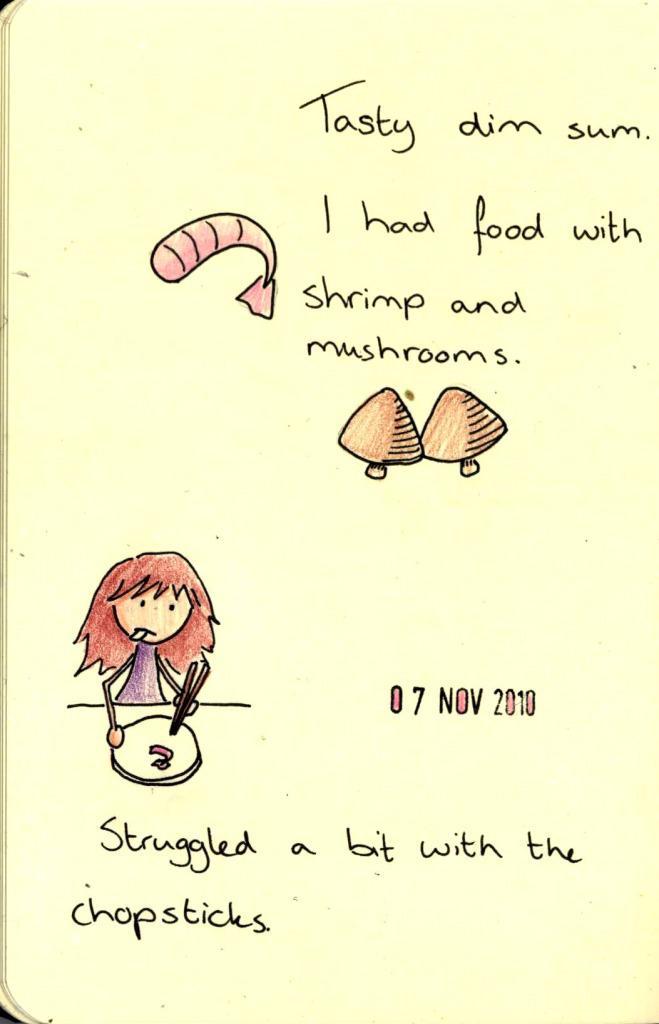 Tasty dim sum.
I had food with
shrimp and
mushrooms.
07 NOV 2010
Struggled a bit with the
chopsticks.